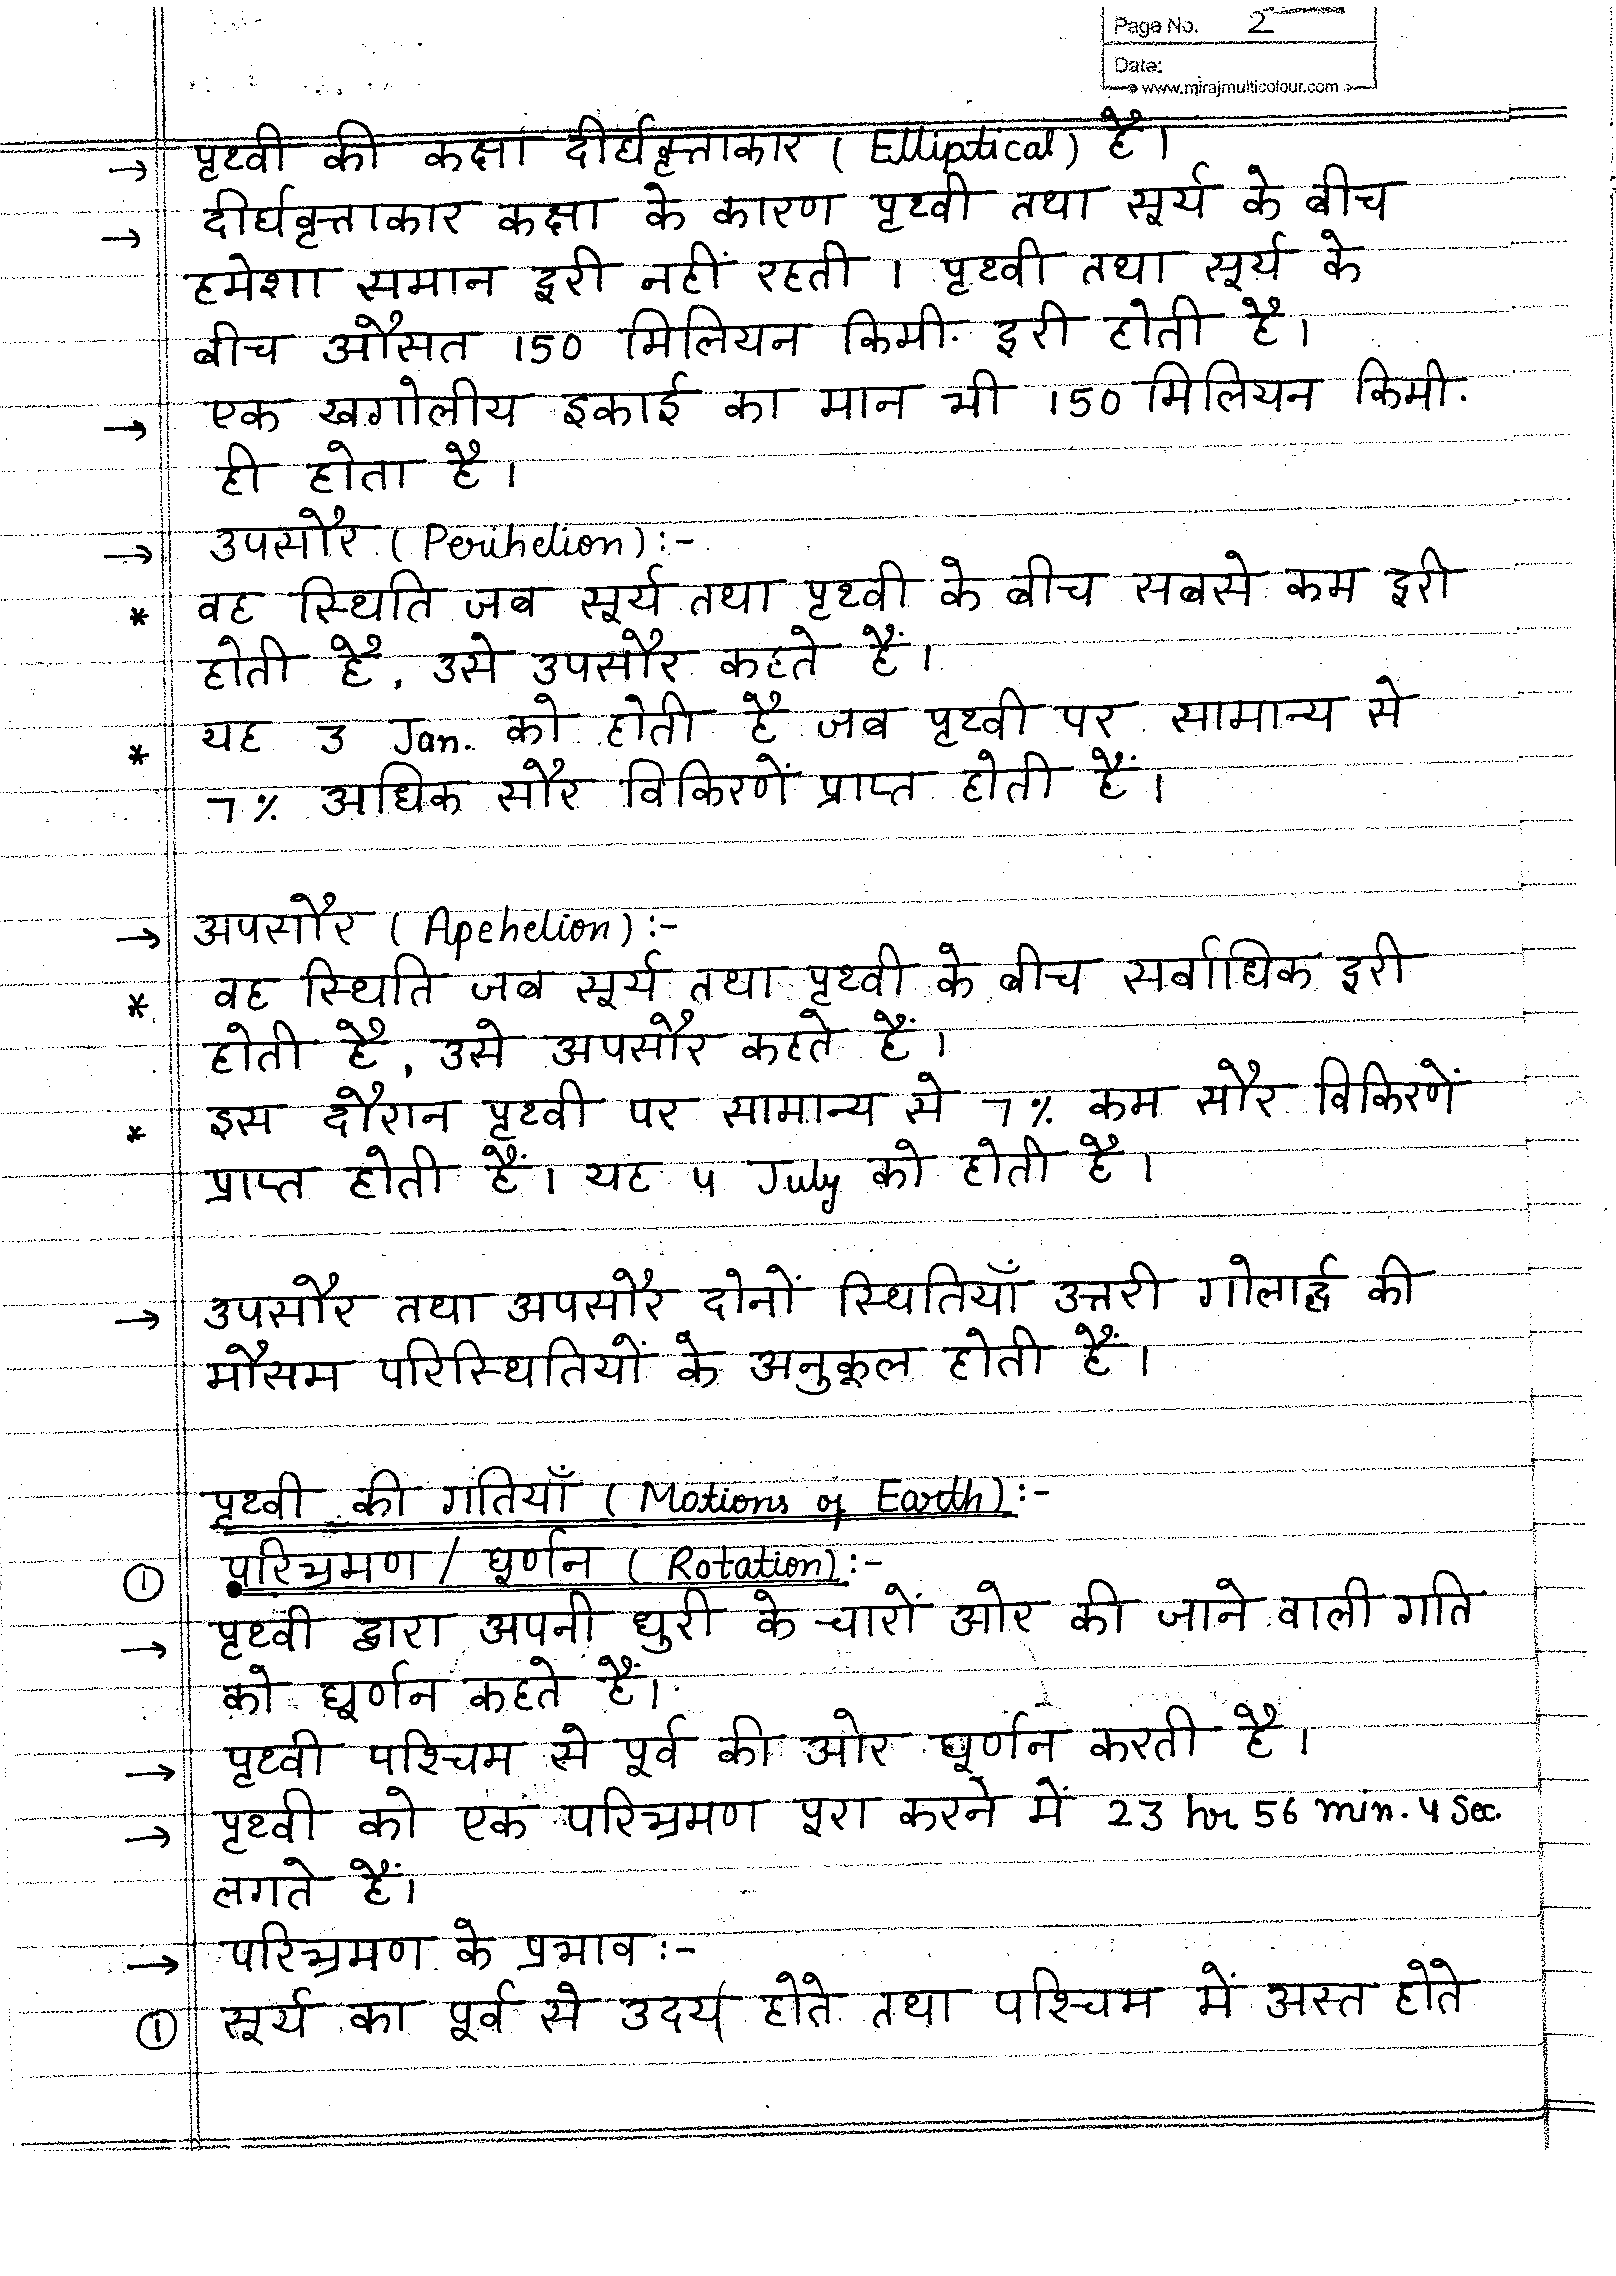 Page No. 2
Date:
www.mirajmulticolour.com
→ पृथ्वी की कक्षा दीर्घवृत्ताकार (Elliptical) है।
→ दीर्घवृत्ताकार कक्षा के कारण पृथ्वी तथा सूर्य के बीच
हमेशा समान दूरी नहीं रहती। पृथ्वी तथा सूर्य के
बीच औसत 150 मिलियन किमी. दूरी होती है।
→ एक खगोलीय इकाई का मान भी 150 मिलियन किमी.
ही होता है।
→ उपसौर (Perihelion):-
* वह स्थिति जब सूर्य तथा पृथ्वी के बीच सबसे कम दूरी
होती है, उसे उपसौर कहते हैं।
* यह 3 Jan. को होती है जब पृथ्वी पर सामान्य से
7% अधिक सौर विकिरणें प्राप्त होती हैं।
→ अपसौर (Apehelion):-
* वह स्थिति जब सूर्य तथा पृथ्वी के बीच सर्वाधिक दूरी
होती है, उसे अपसौर कहते हैं।
* इस दौरान पृथ्वी पर सामान्य से 7% कम सौर विकिरणें
प्राप्त होती हैं। यह 4 July को होती है।
→ उपसौर तथा अपसौर दोनों स्थितियाँ उत्तरी गोलार्द्ध की
मौसम परिस्थितियों के अनुकूल होती हैं।
पृथ्वी की गतियाँ (Motions of Earth):-
① परिभ्रमण / घूर्णन (Rotation):-
→ पृथ्वी द्वारा अपनी धुरी के चारों ओर की जाने वाली गति
को घूर्णन कहते हैं।
→ पृथ्वी पश्चिम से पूर्व की ओर घूर्णन करती है।
→ पृथ्वी को एक परिभ्रमण पूरा करने में 23 hr 56 min. 4 Sec.
लगते हैं।
→ परिभ्रमण के प्रभाव:-
① सूर्य का पूर्व से उदय होते तथा पश्चिम में अस्त होते